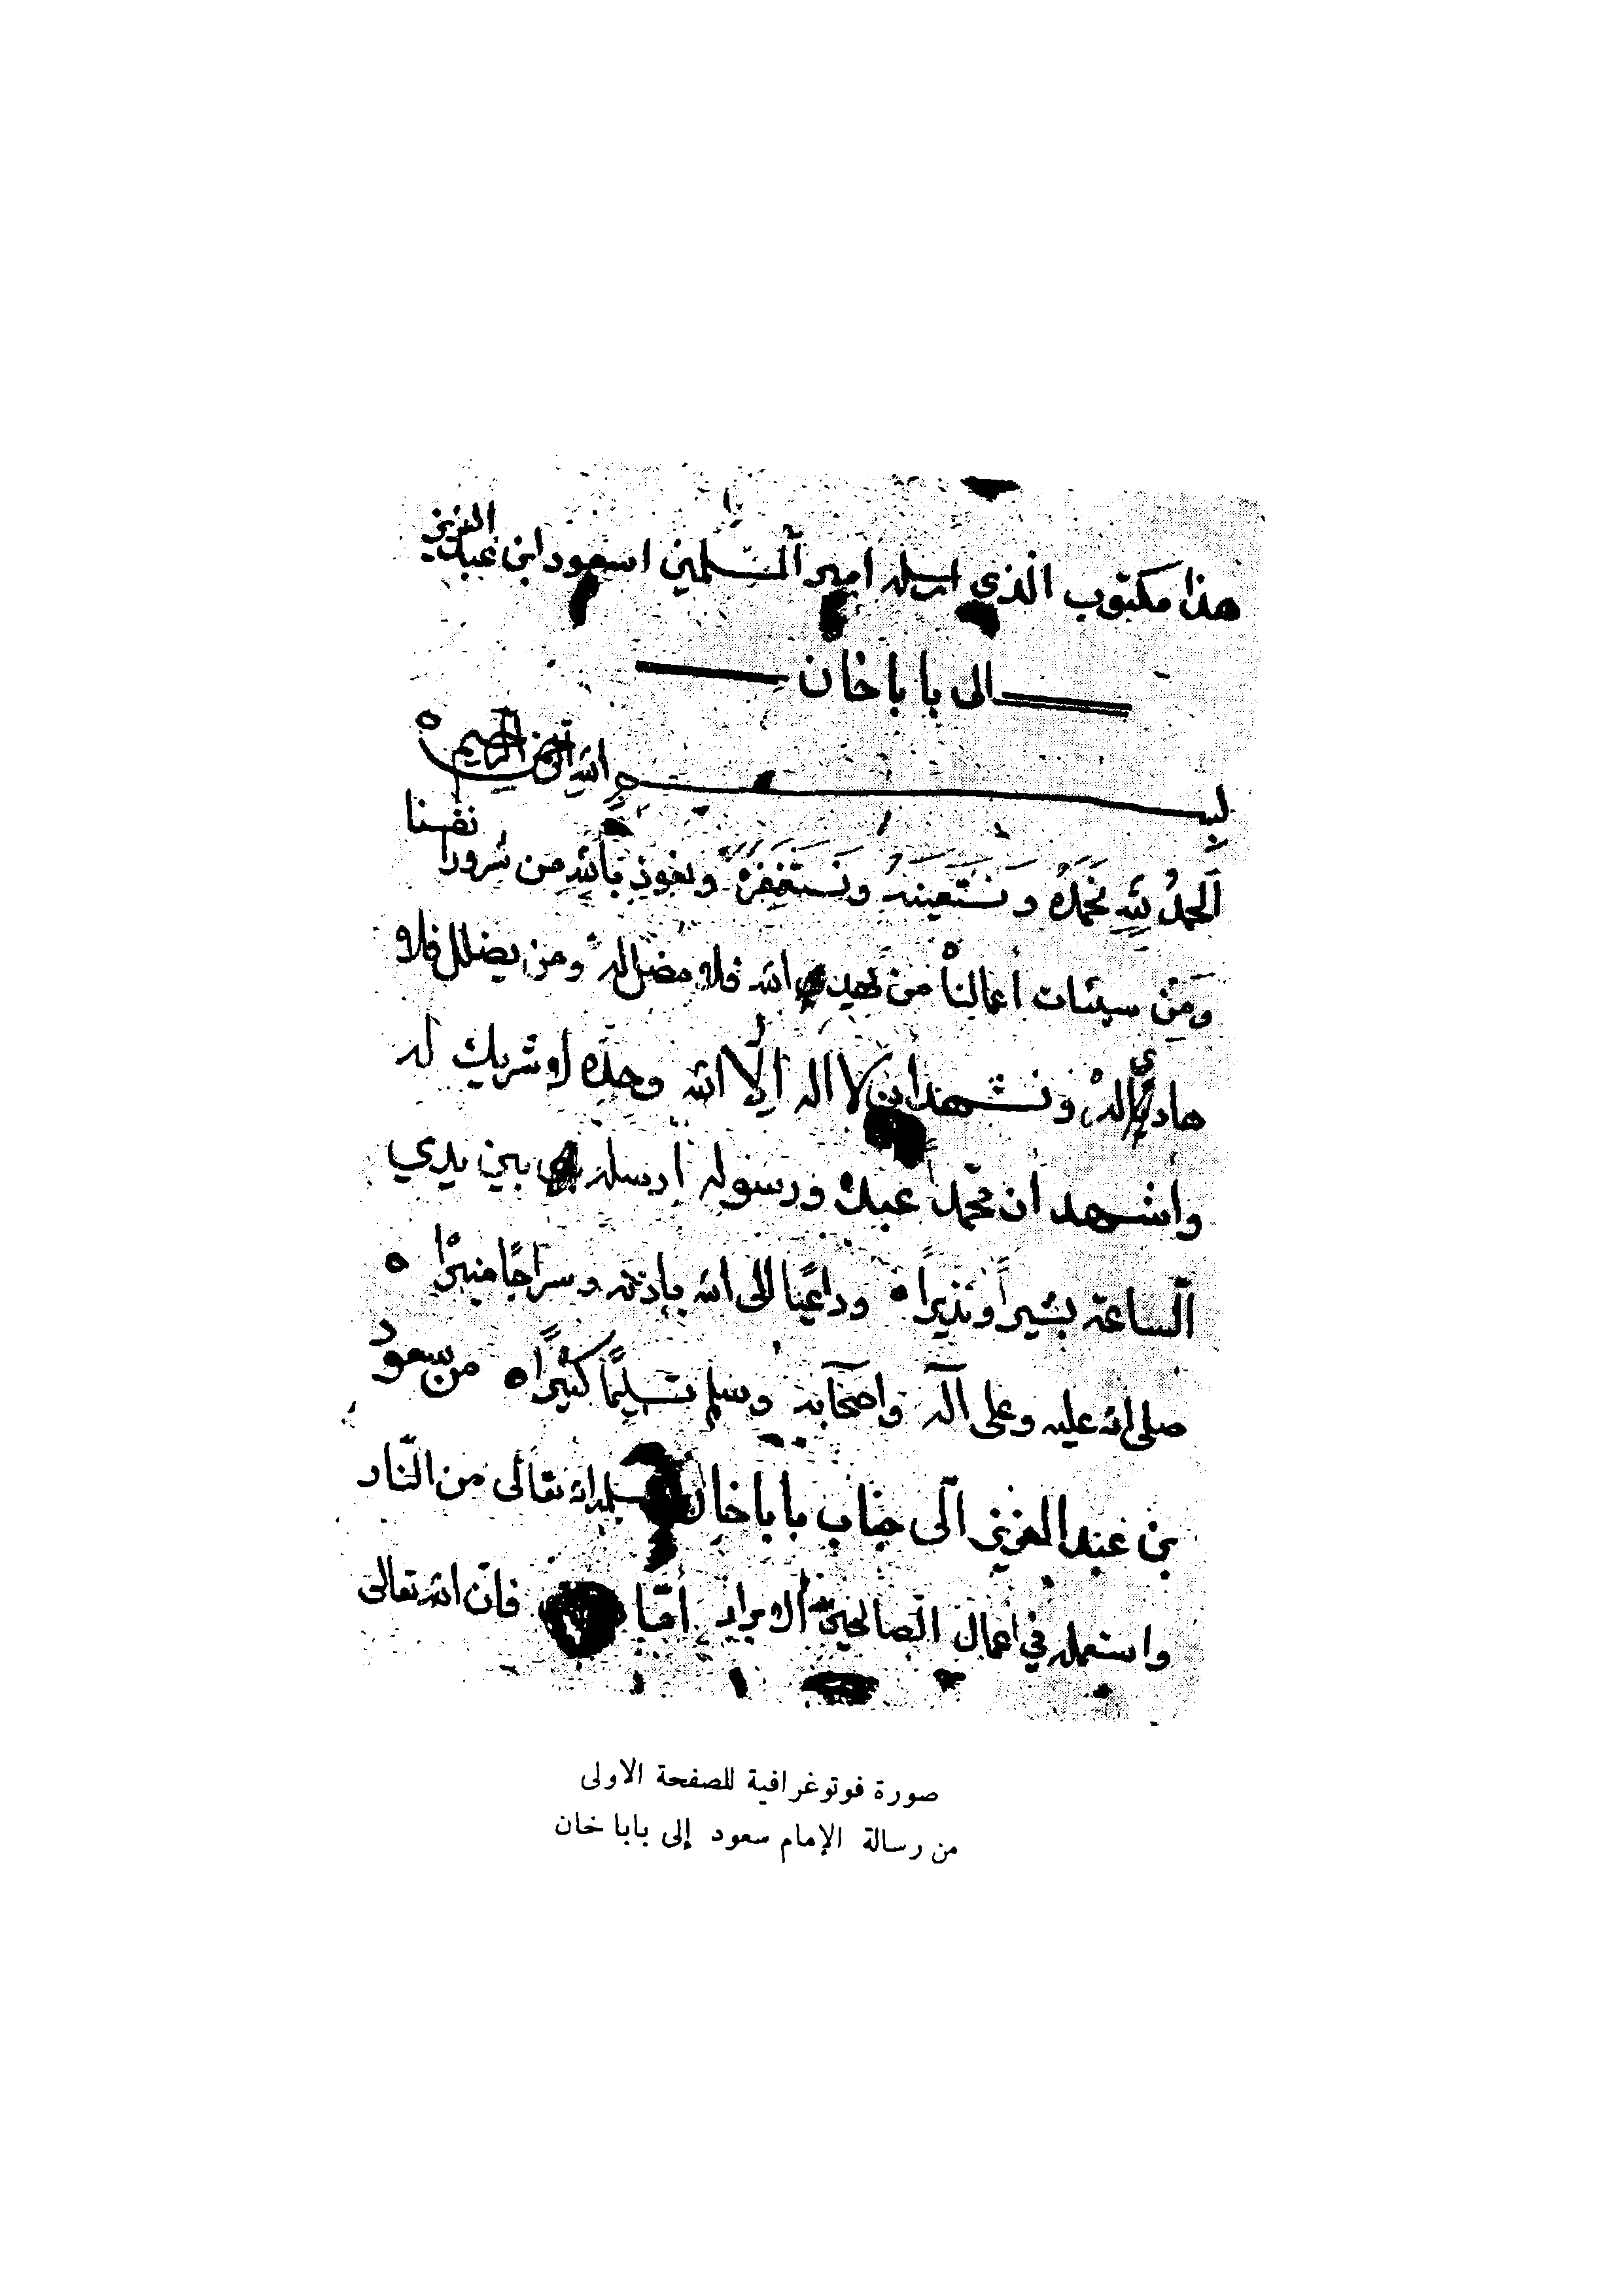 هذا مكتوب الذي ارسله امير المسلمين اسعود ابن عبد العزيز
الى بابا خان
بسم الله الرحمن الرحيم
اَلحمدُ للهِ نحمَدُهُ و نستعينهُ ونستغفرهُ ونعوذ باللهِ من شرور انفسنا
ومن سيئات أعمالنا من يهدي الله فلا مضل لهُ ومن يضلل فلا
هادي لهُ ونشهد ان لا اله الا الله وحده لا شريك له
وأشهد أن محمداً عبده ورسوله أرسله بين يدي
الساعة بشيراً ونذيراً وداعيًا إلى الله بإذنه وسراجًا منيرًا
صلى الله عليه وعلى آله واصحابه وسلم تسليمًا كثيرًا من سعود
بن عبد العزيز الى جناب بابا خان سلمه الله تعالى من النار
واستعمله في اعمال الصالحين الابرار أمّا فان الله تعالى
صورة فوتوغرافية للصفحة الاولى
من رسالة الإمام سعود إلى بابا خان